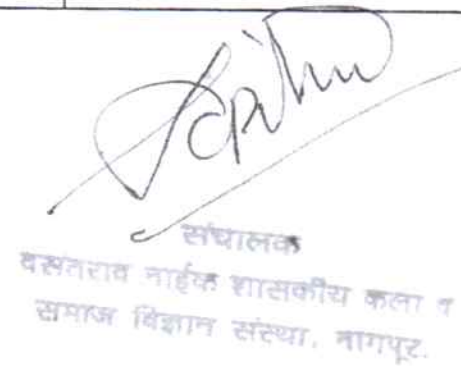 संचालक
वसंतराव नाईक शासकीय कला व
समाज विज्ञान संस्था, नागपूर.